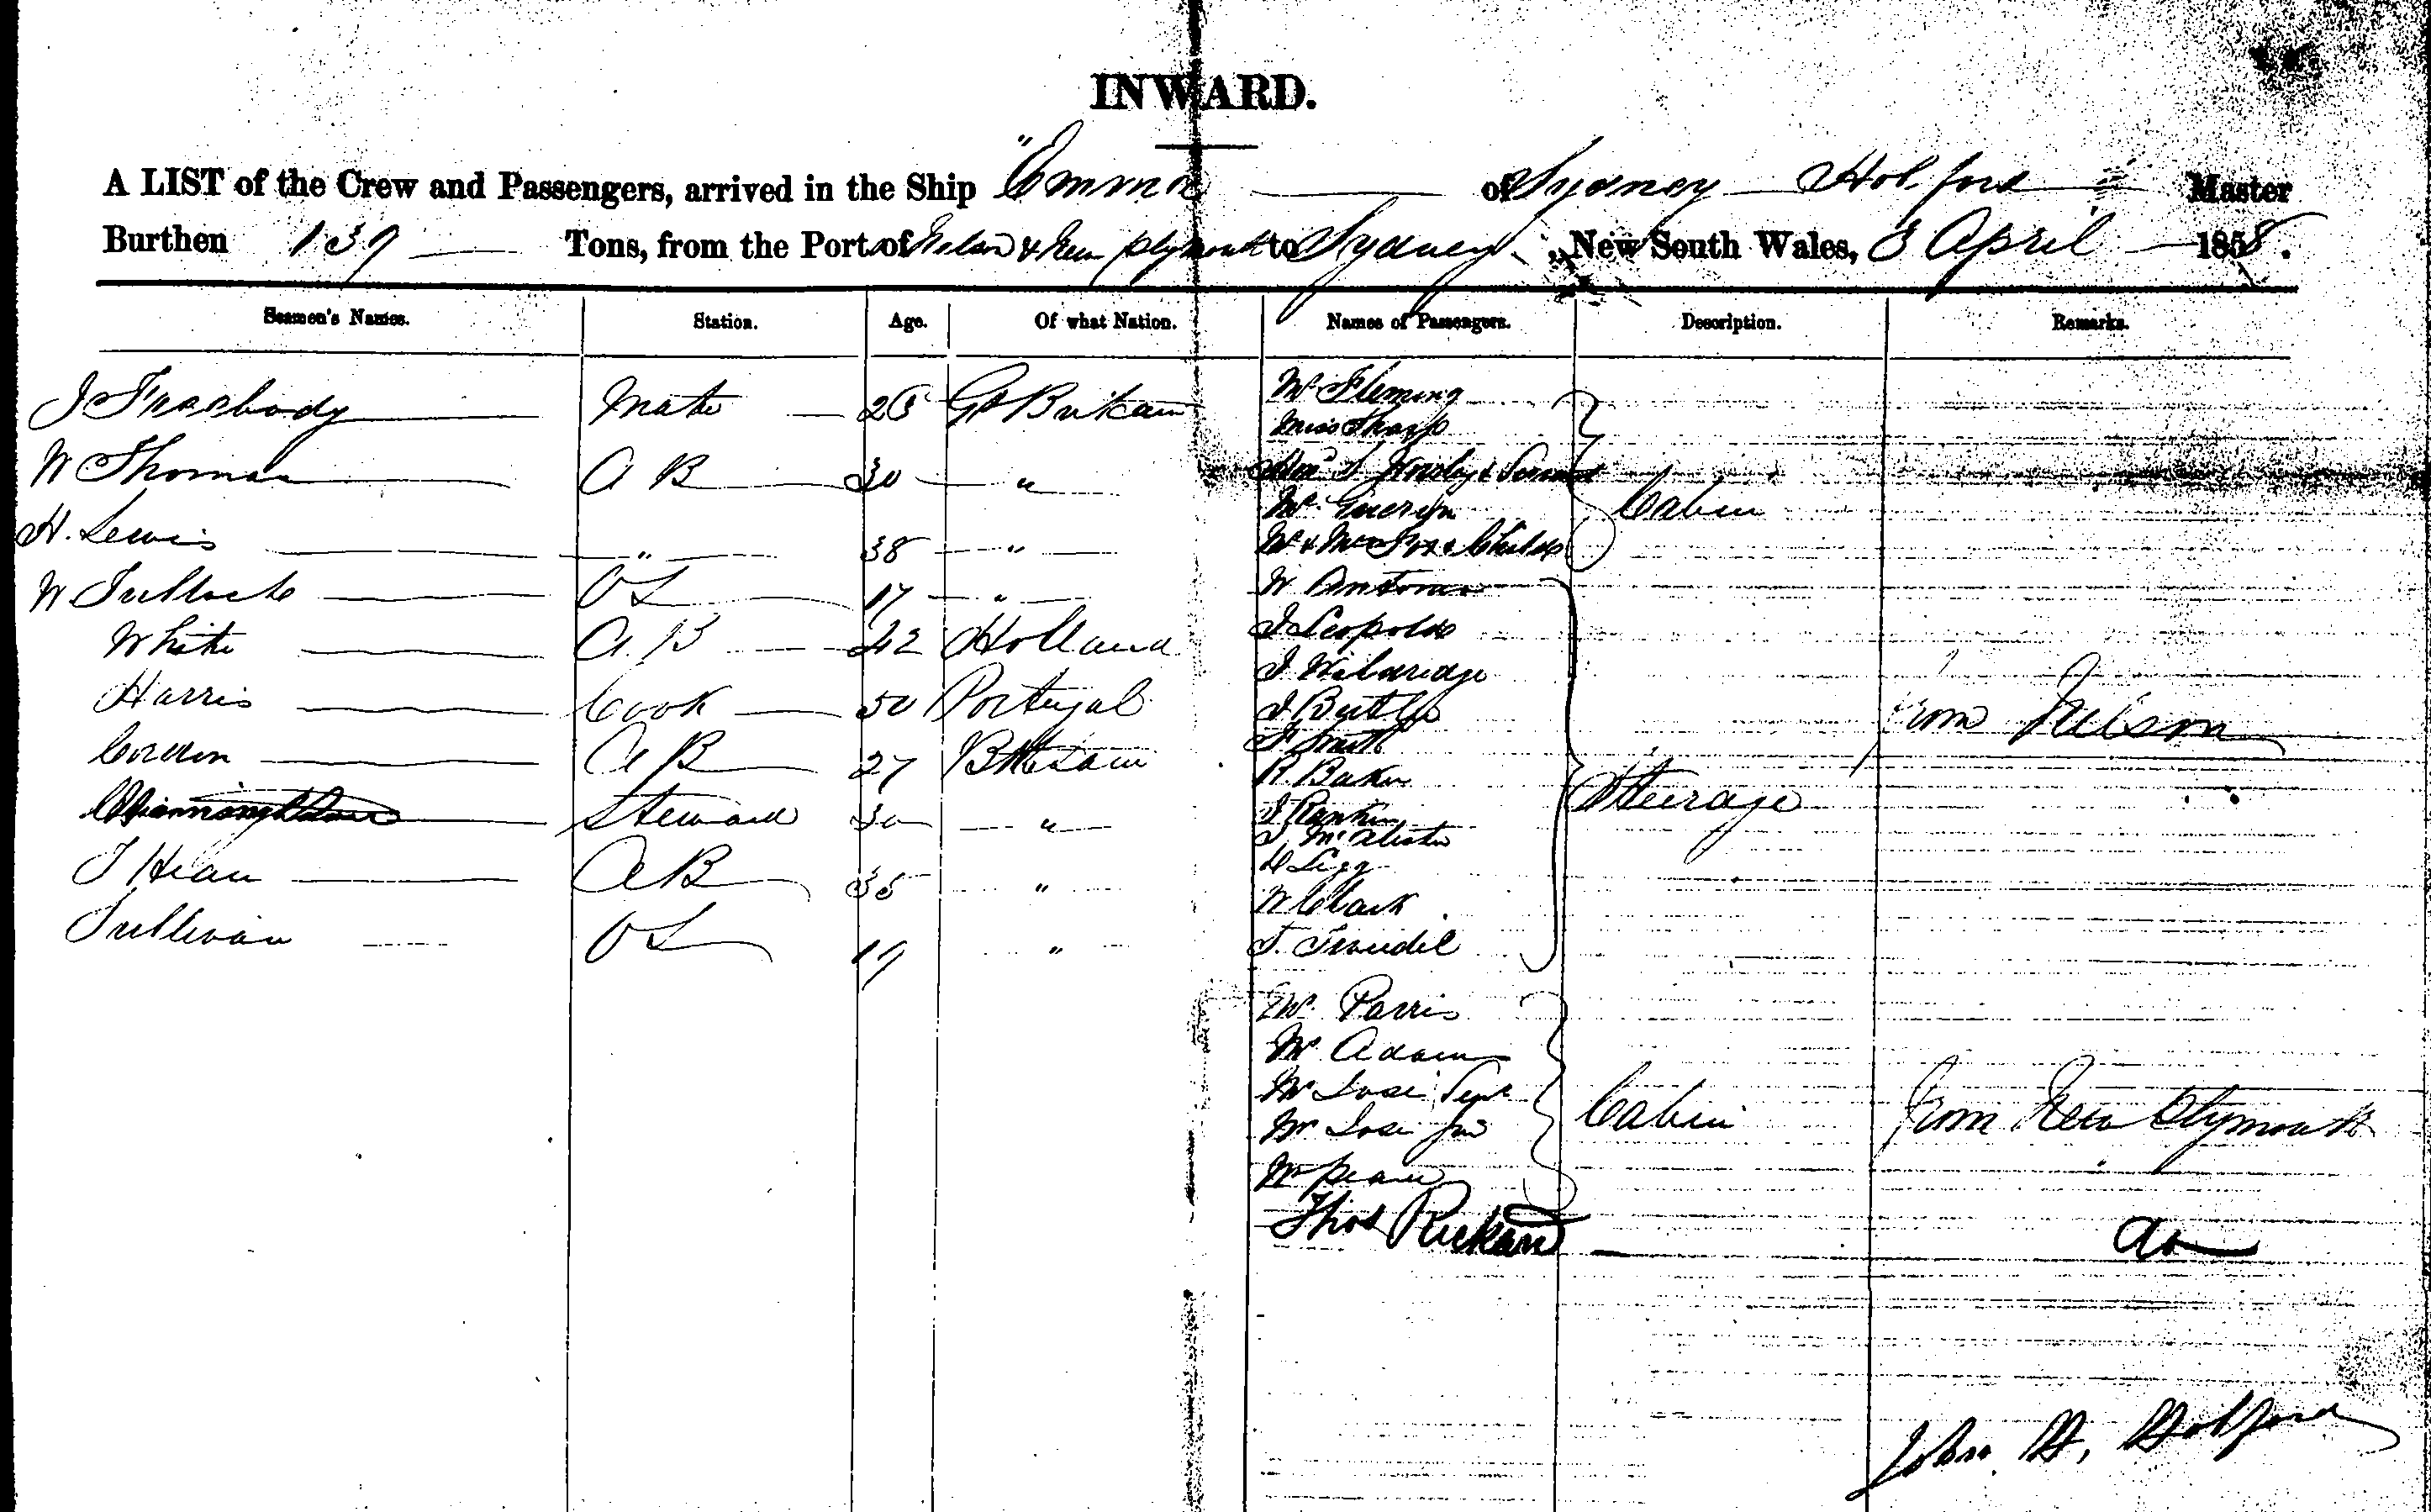 INWARD.
A LIST of the Crew and Passengers, arrived in the Ship "Emma of Sydney Holford Master
Burthen 139 Tons, from the Port of Nelson & New Plymouth to Sydney, New South Wales, 3 April 1858.
Seamen's Names. Station. Age. Of what Nation. Names of Passengers. Description. Remarks.
J Freebody Mate 26 Gt Britain
W Thomas A B 30 "
H. Lewis " 38 "
W Tulloch O S 17 "
White A. B 42 Holland
Harris Cook 50 Portugal
A B 27 Britain
Steward 30 "
T A B 35 "
Sullivan O S 19 "
Mr Fleming
Miss Sharp
Mr
Mr & Mrs Fox & Child
Cabin
W Antonio
J Leopold
J
J Butler
F Smith
R. Baker
J Rankin
J McAlister
W Clark
T.
Steerage
from Nelson
Mr Parris
Mr Adams
Mr
Mr Junr
Mr
Cabin
from New Plymouth
Thos Rickard do
John H. Holford